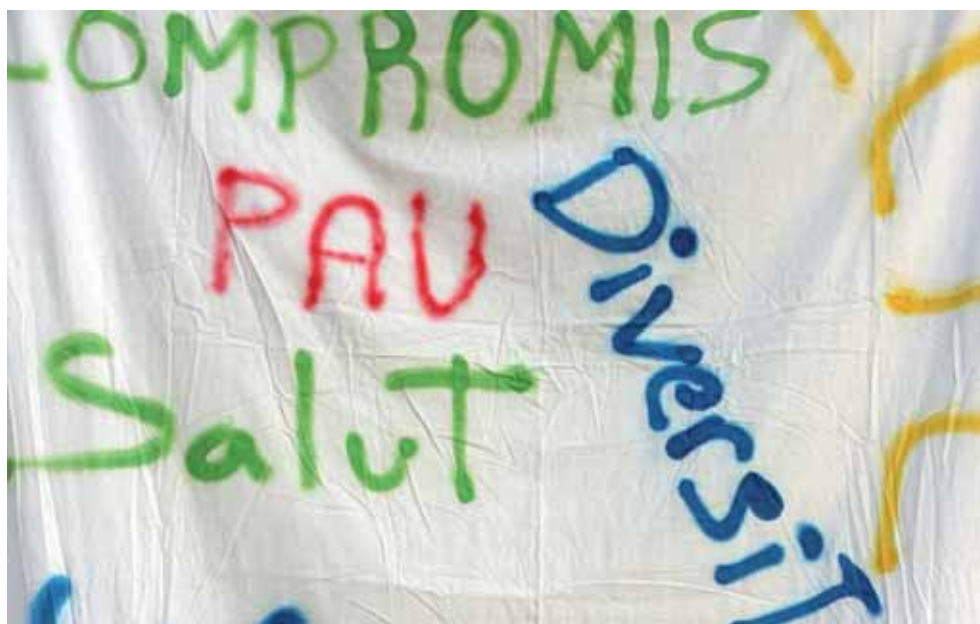 COMPROMIS
PAU
Salut
Diversit